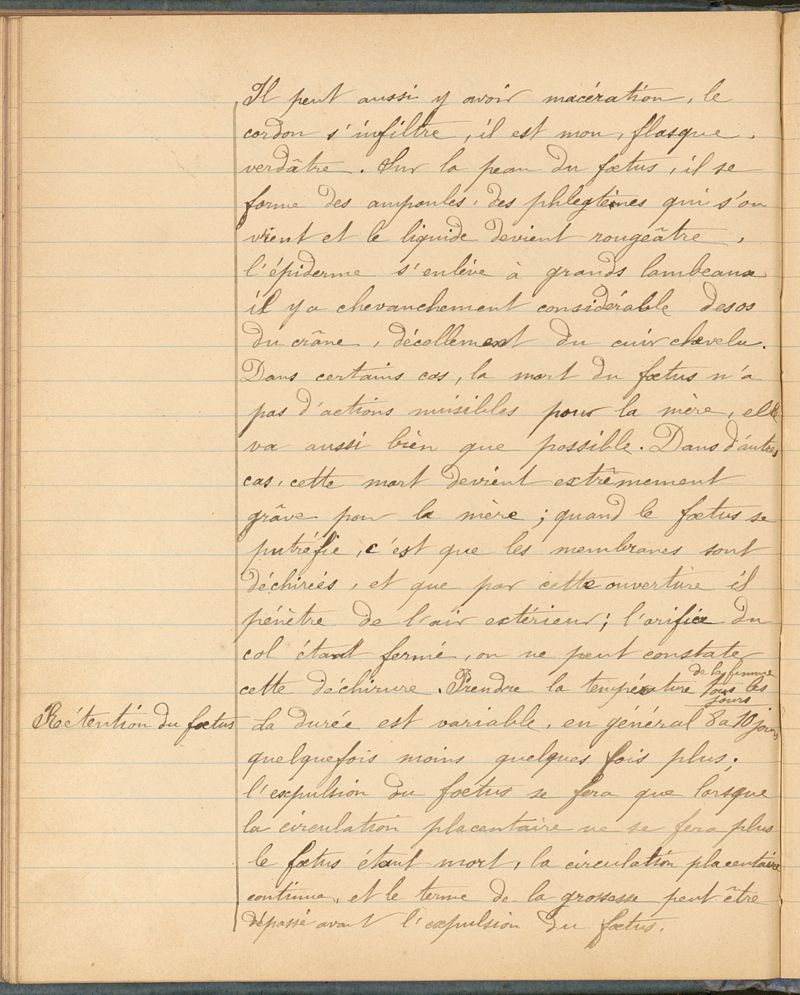 Il peut aussi y avoir macération, le
cordon s'infiltre, il est mou, flasque,
verdâtre. Sur la peau du fœtus, il se
forme des ampoules, des phlegtènes qui s'ou
vrent et le liquide devient rougeâtre,
l'épiderme s'enlève à grands lambeaux
il y a chevauchement considérable des os
du crâne, décollement du cuir chevelu.
Dans certains cas, la mort du fœtus n'a
pas d'actions nuisibles pour la mère, elle
va aussi bien que possible. Dans d'autres
cas, cette mort devient extrêmement
grâve pour la mère ; quand le fœtus se
putréfie, c'est que les membranes sont
déchirées, et que par cette ouverture il
pénètre de l'air extérieur ; l'orifice du
col étant fermé, on ne peut constater
cette déchirure. Prendre la température de la femme tous les
jours
Rétention du fœtus La durée est variable, en général 8 a 10 jours
quelquefois moins, quelques fois plus,
l'expulsion du fœtus se fera que lorsque
la circulation placentaire ne se fera plus
le fœtus étant mort, la circulation placentaire
continua, et le terme de la grossesse peut être
dépassé avant l'expulsion du fœtus.